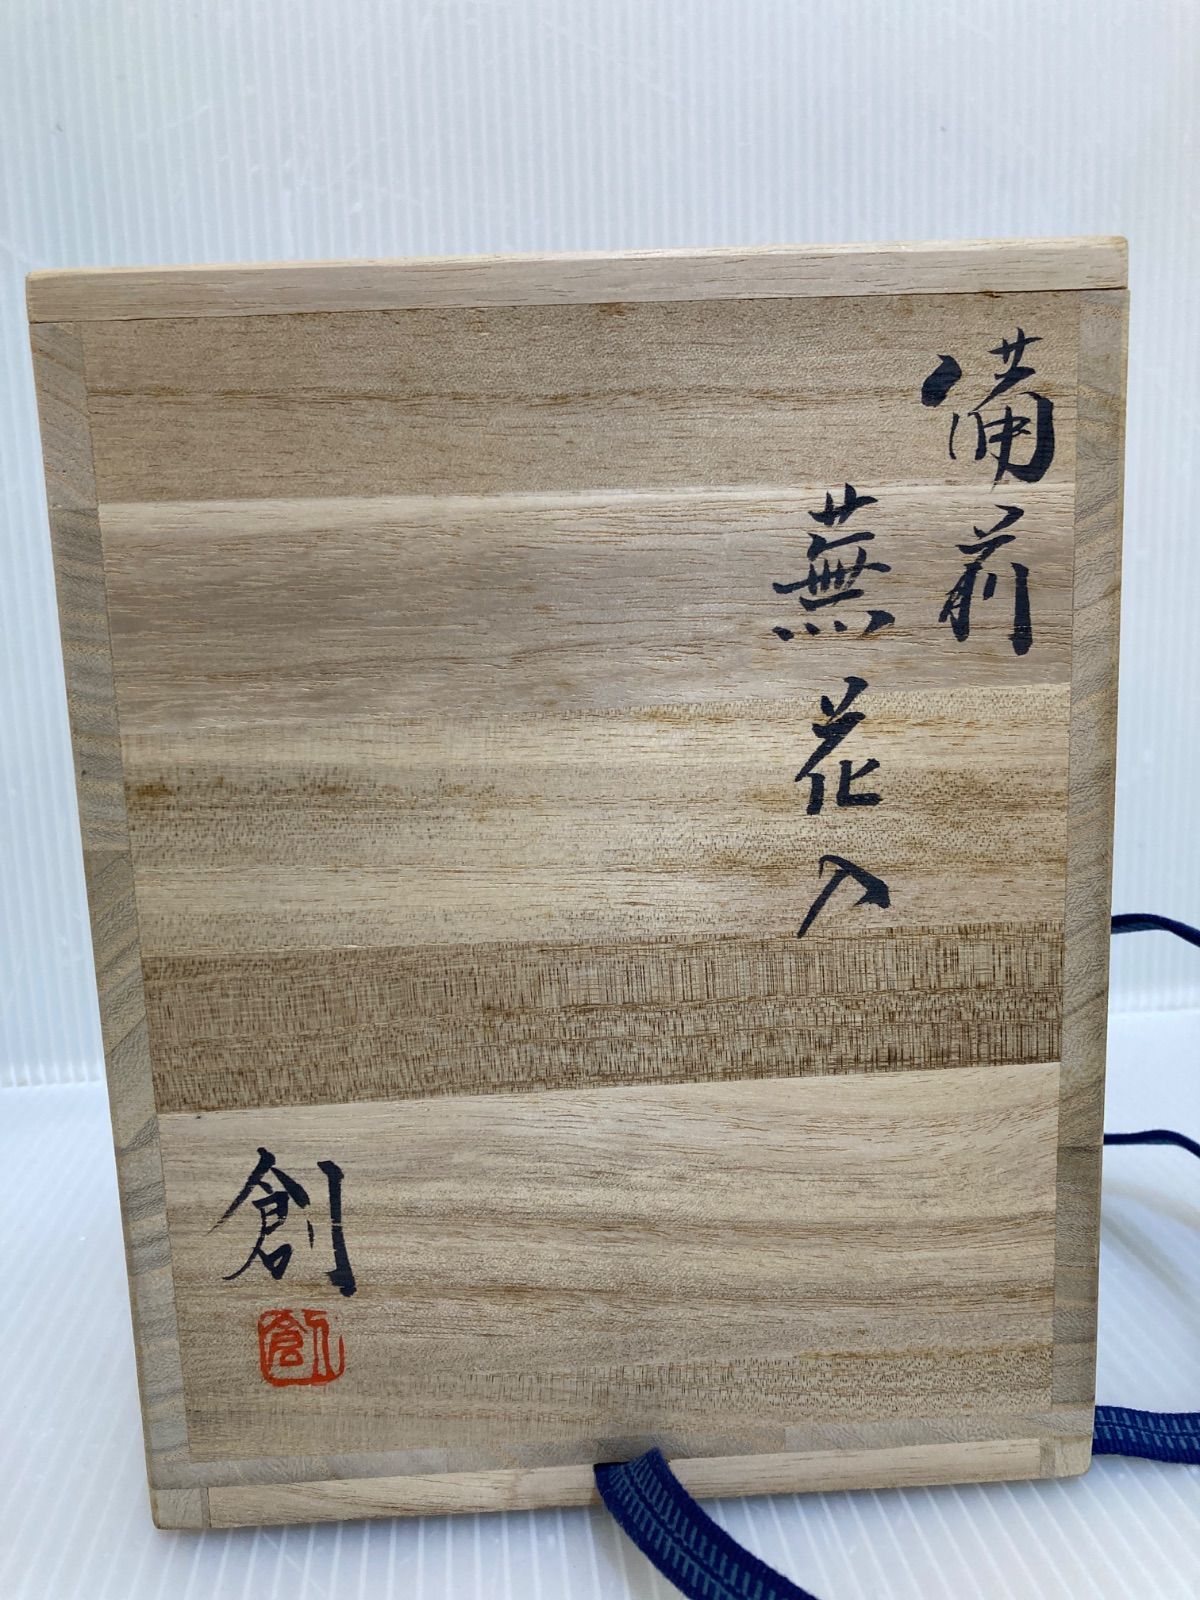 備前
蕪花入
創
創